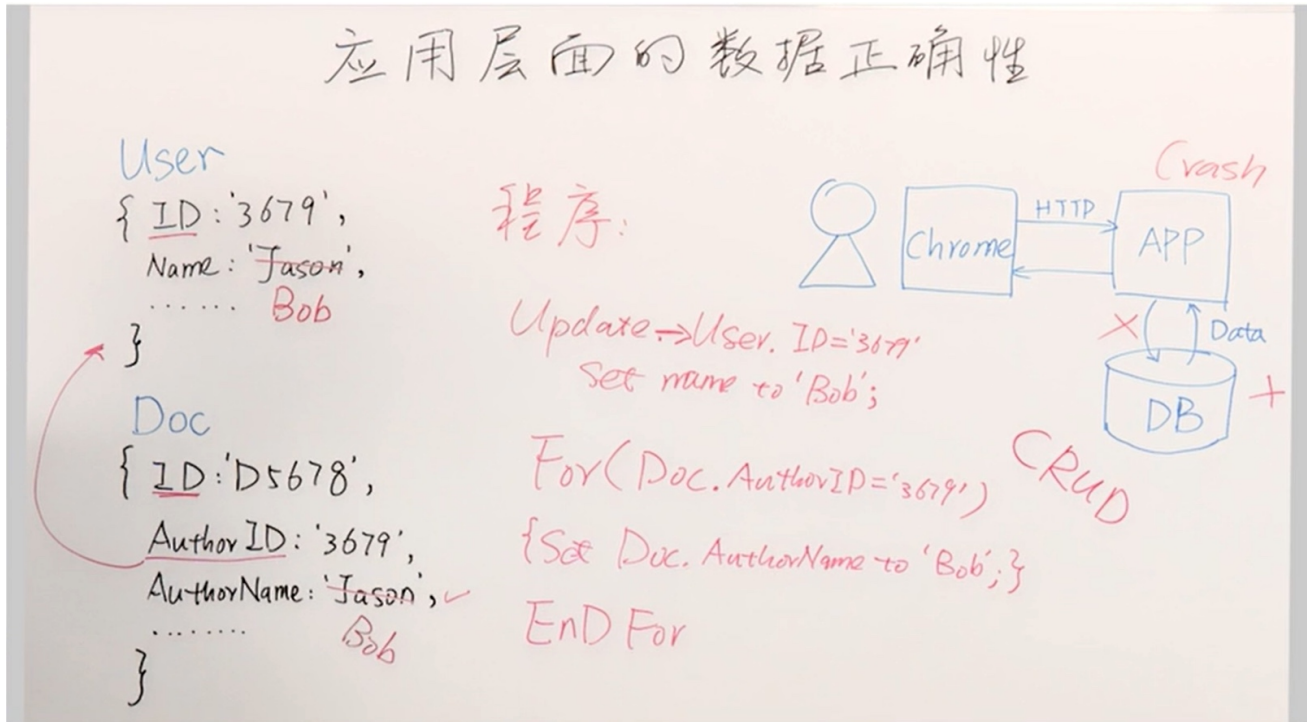 应用层面的数据正确性
User
{ ID:'3679',
Name:'Jason',
...... Bob
}
Doc
{ ID:'D5678',
AuthorID:'3679',
AuthorName:'Jason',
........ Bob
}
程序:
Update→User. ID='3679'
Set name to 'Bob';
For(Doc.AuthorID='3679')
{Set Doc.AuthorName to 'Bob';}
EnD For
CRUD
Crash
Chrome
HTTP
APP
Data
DB